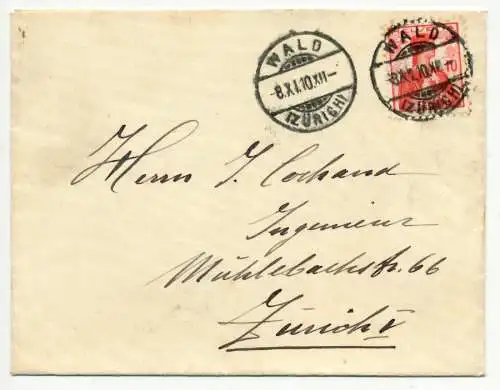 WALD
-8.XI.10.XII-
(ZÜRICH)
WALD
-8.XI.10.XII-
(ZÜRICH)
10
Herrn J. Cochand
Ingenieur
Mühlebachstr. 66
Zürich V